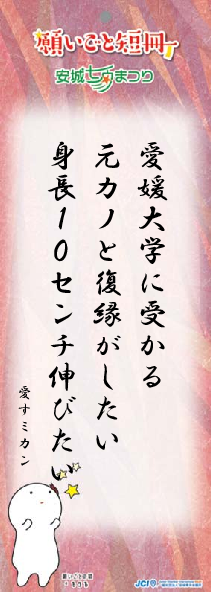 願いごと短冊
安城七夕まつり
愛媛大学に受かる
元カノと復縁がしたい
身長10センチ伸びたい
愛すミカン
JCI